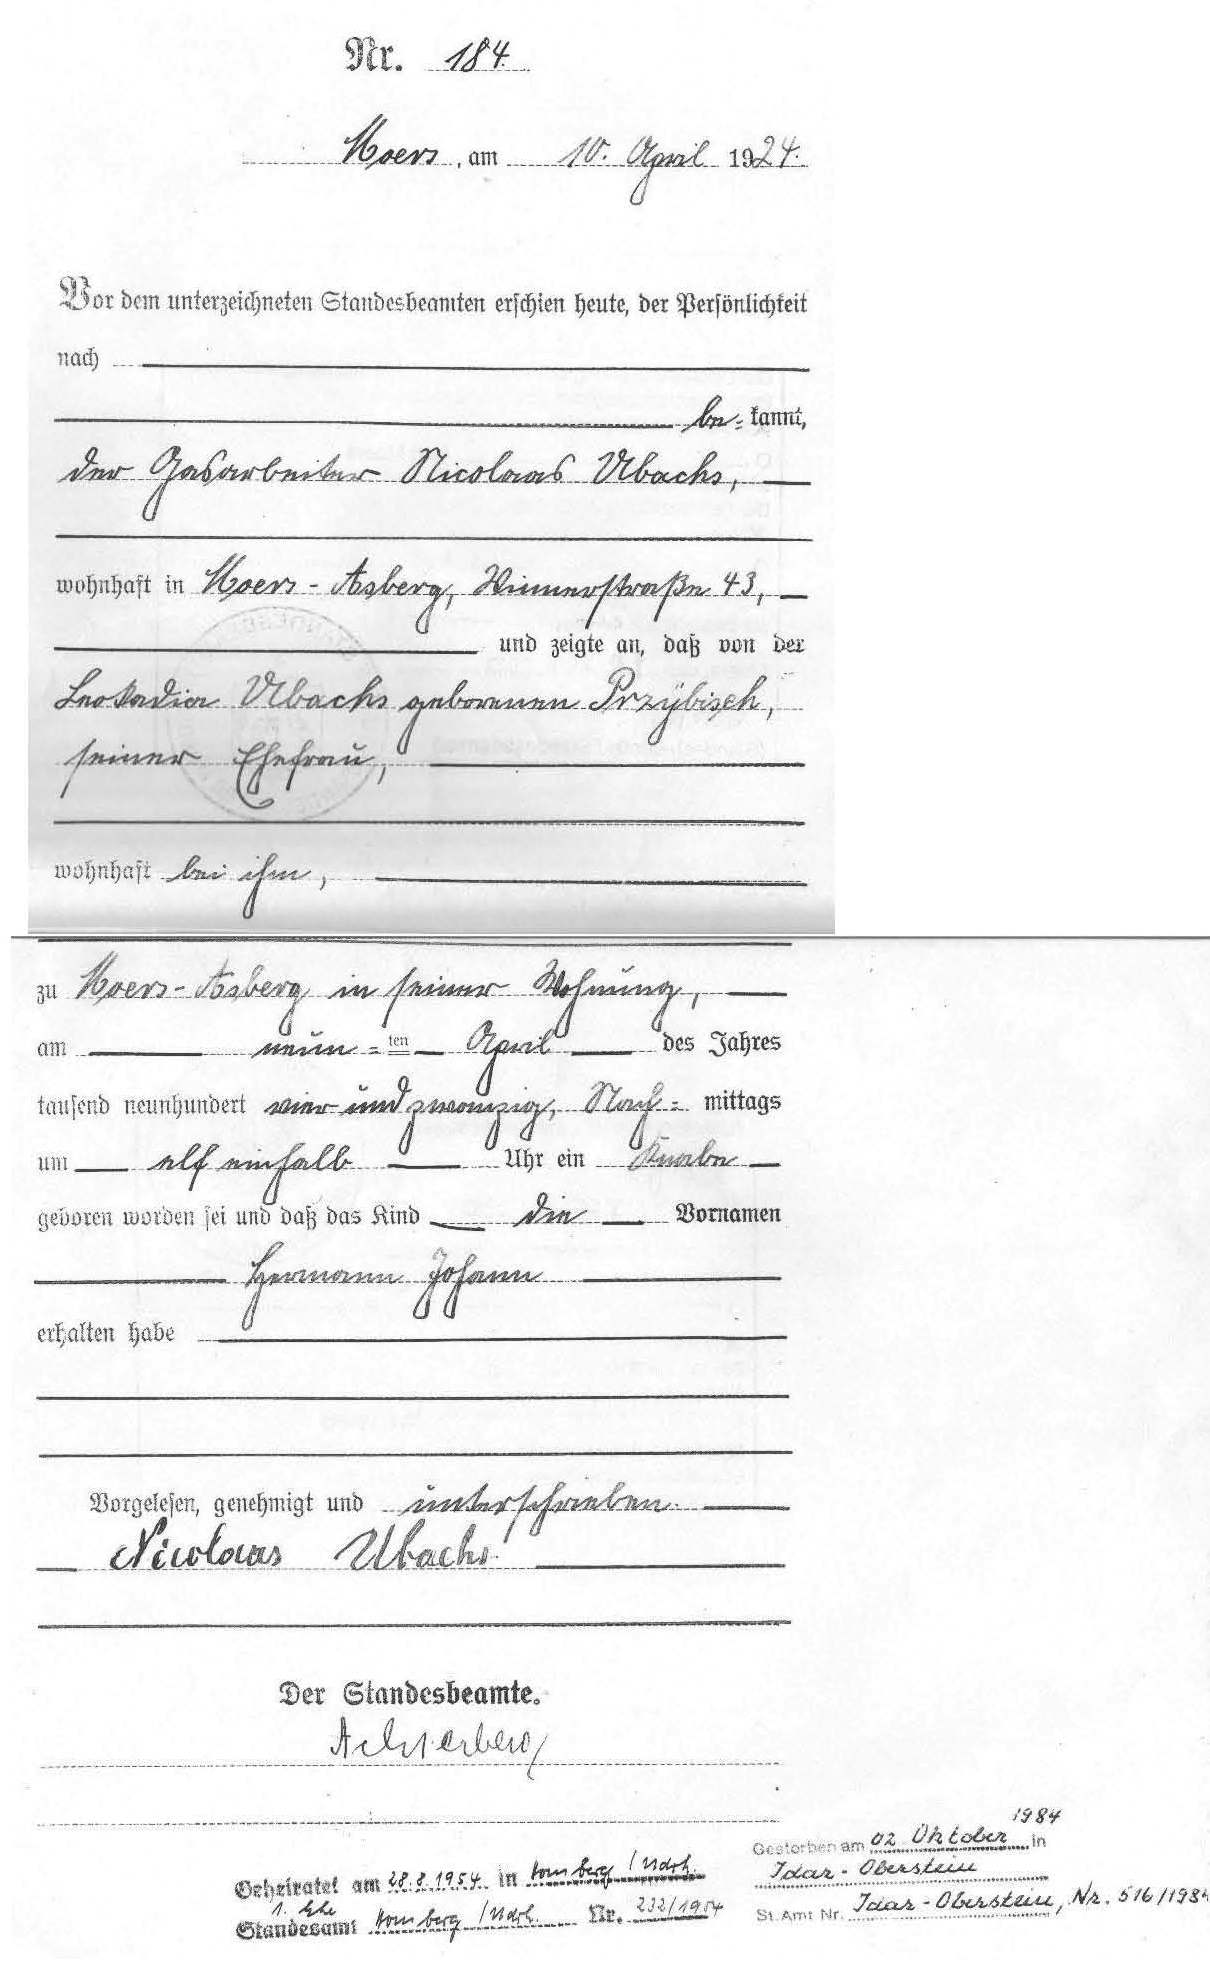 Nr. 184.
Moers, am 10. April 1924.
Vor dem unterzeichneten Standesbeamten erschien heute, der Persönlichkeit
nach
be=kannt,
der Gasarbeiter Nicolaas Ubachs,
wohnhaft in Moers-Asberg, Winnerstraße 43,
und zeigte an, daß von der
Leokadia Ubachs geborenen Przybisch,
seiner Ehefrau,
wohnhaft bei ihm,
zu Moers-Asberg in seiner Wohnung,
am neun=ten April des Jahres
tausend neunhundert vier und zwanzig, Nach=mittags
um elf einhalb Uhr ein Knabe
geboren worden sei und daß das Kind die Vornamen
Hermann Johann
erhalten habe
Vorgelesen, genehmigt und unterschrieben.
Nicolaas Ubachs.
Der Standesbeamte.
Achterberg
1984
Gestorben am 02 Oktober in
Idar-Oberstein
St.Amt Nr. Idar-Oberstein, Nr. 516/1984
Geheiratet am 28.8.1954 in Homberg/Ndrh.
1. Ehe
Standesamt Homberg/Ndrh. Nr. 232/1954